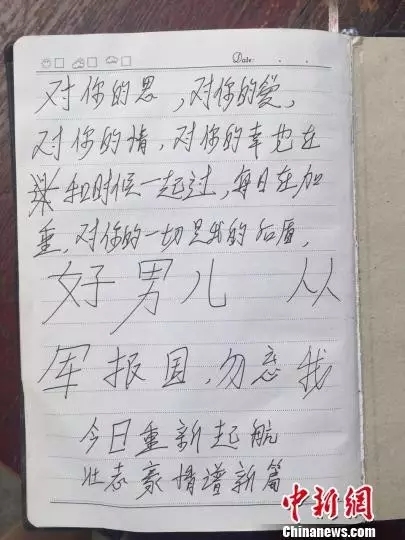 Date:
对你的思,对你的爱,
对你的情,对你的幸也在
和时候一起过,每日在加
重,对你的一切是我的后盾,
好男儿 从
军报国,勿忘我
今日重新起航
壮志豪情谱新篇
中新网
Chinanews.com